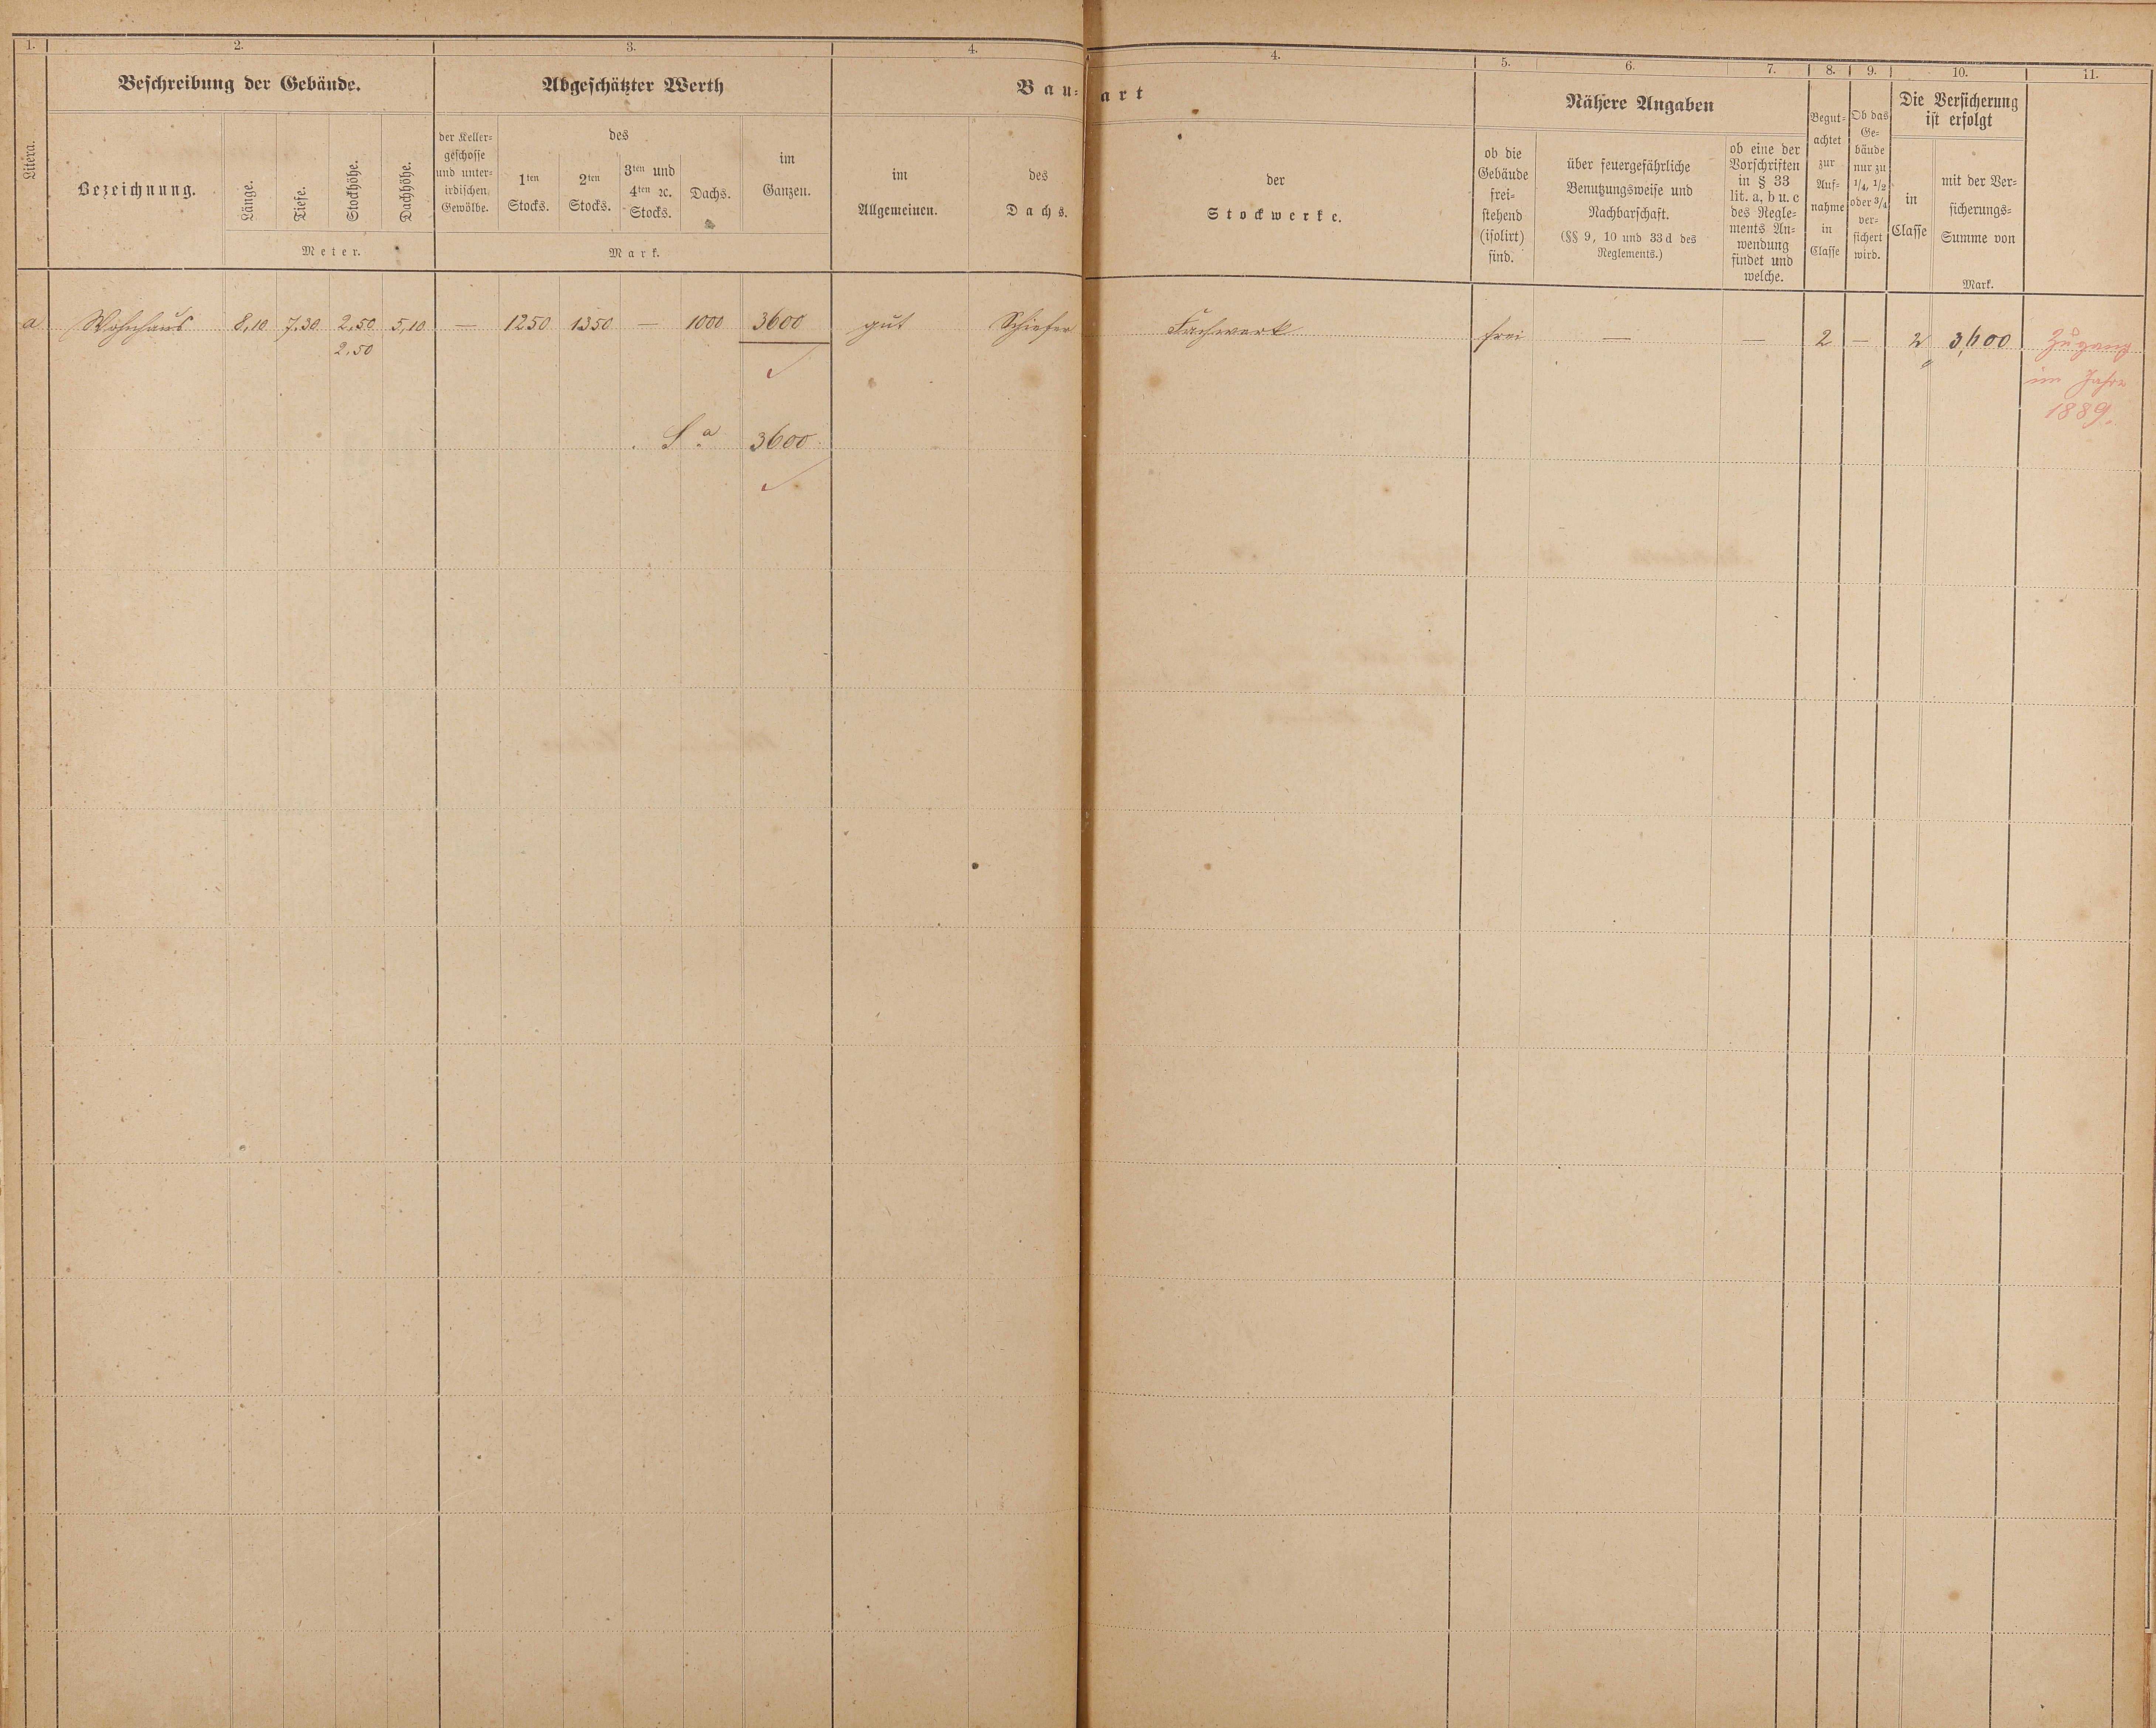 1. 2. 3. 4. 4. 5. 6. 7. 8. 9. 10. 11.
Litera.
Beschreibung der Gebäude.
Bezeichnung.
Länge.
Tiefe.
Stockhöhe.
Dachhöhe.
Meter.
Abgeschätzter Werth
der Keller-
geschosse
und unter-
irdischen
Gewölbe.
des
1ten
Stocks.
2ten
Stocks.
3ten und
4ten ꝛc.
Stocks.
Dachs.
im
Ganzen.
Mark.
Bau-
art
im
Allgemeinen.
des
Dachs.
der
Stockwerke.
Nähere Angaben
ob die
Gebäude
frei-
stehend
(isolirt)
sind.
über feuergefährliche
Benutzungsweise und
Nachbarschaft.
(§§ 9, 10 und 33 d des
Reglements.)
ob eine der
Vorschriften
in § 33
lit. a, b u. c
des Regle-
ments An-
wendung
findet und
welche.
Begut-
achtet
zur
Auf-
nahme
in
Classe
Ob das
Ge-
bäude
nur zu
1/4, 1/2
oder 3/4
ver-
sichert
wird.
Die Versicherung
ist erfolgt
in
Classe
mit der Ver-
sicherungs-
Summe von
Mark.
a Wohnhaus 8,10 7,30 2,50 5,10 — 1250 1350 — 1000 3600 gut Schiefer Fachwerk frei — — 2 — 2 3,600 Zugang
2,50
im Jahre
1889.
Sa 3600